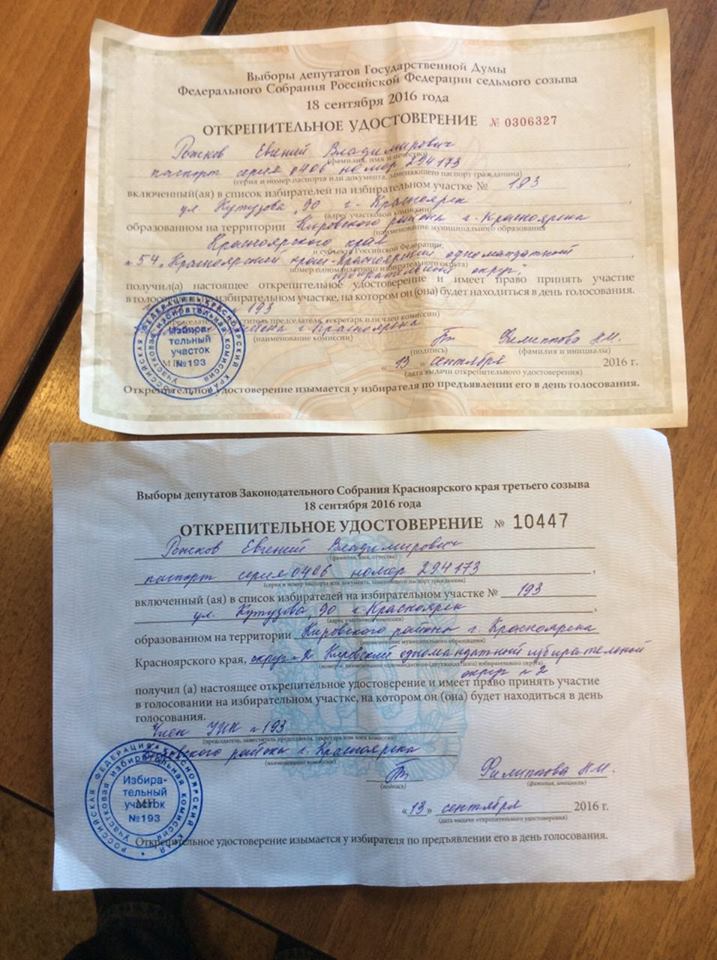 Выборы депутатов Государственной Думы
Федерального Собрания Российской Федерации седьмого созыва
18 сентября 2016 года
ОТКРЕПИТЕЛЬНОЕ УДОСТОВЕРЕНИЕ № 0306327
Евгений Владимирович
(фамилия, имя и отчество)
паспорт серия 0406 номер 294173
(серия и номер паспорта или документа, заменяющего паспорт гражданина)
включенный(ая) в список избирателей на избирательном участке № 193
ул. Кутузова 90 г. Красноярск
(адрес участковой комиссии)
образованном на территории Кировского района г. Красноярска
(наименование муниципального образования
Красноярского края
субъекта Российской Федерации,
"54", Красноярский край - Красноярский одномандатный
номер одномандатного избирательного округа)
избирательный округ,
получил(а) настоящее открепительное удостоверение и имеет право принять участие
в голосовании на избирательном участке, на котором он (она) будет находиться в день голосования.
193
председателя, секретарь или член комиссии)
района г. Красноярска
(наименование комиссии)
Филиппова Н.М.
(подпись) (фамилия и инициалы)
"13" сентября 2016 г.
(дата выдачи открепительного удостоверения)
Открепительное удостоверение изымается у избирателя по предъявлении его в день голосования.
РОССИЙСКАЯ ФЕДЕРАЦИЯ КРАСНОЯРСКИЙ КРАЙ
Участковая избирательная комиссия
Избира-
тельный
участок
№193
Выборы депутатов Законодательного Собрания Красноярского края третьего созыва
18 сентября 2016 года
ОТКРЕПИТЕЛЬНОЕ УДОСТОВЕРЕНИЕ № 10447
Евгений Владимирович
(фамилия, имя, отчество)
паспорт серия 0406 номер 294173,
(серия и номер паспорта или документа, заменяющего паспорт гражданина)
включенный (ая) в список избирателей на избирательном участке № 193,
ул. Кутузова 90 г. Красноярск
(адрес участковой комиссии)
образованном на территории Кировского района г. Красноярска
(наименование муниципального образования)
Красноярского края, округ №2 Кировский одномандатный избирательный
округ №2
получил (а) настоящее открепительное удостоверение и имеет право принять участие
в голосовании на избирательном участке, на котором он (она) будет находиться в день
голосования.
Член УИК №193
(председатель, заместитель председателя, секретарь или член комиссии)
Кировского района г. Красноярска
(наименование комиссии)
Филиппова Н.М.
(подпись) (фамилия, инициалы)
"13" сентября 2016 г.
(дата выдачи открепительного удостоверения)
Открепительное удостоверение изымается у избирателя по предъявлении его в день голосования.
РОССИЙСКАЯ ФЕДЕРАЦИЯ КРАСНОЯРСКИЙ КРАЙ
Участковая избирательная комиссия
Избира-
тельный
участок
МП
№193